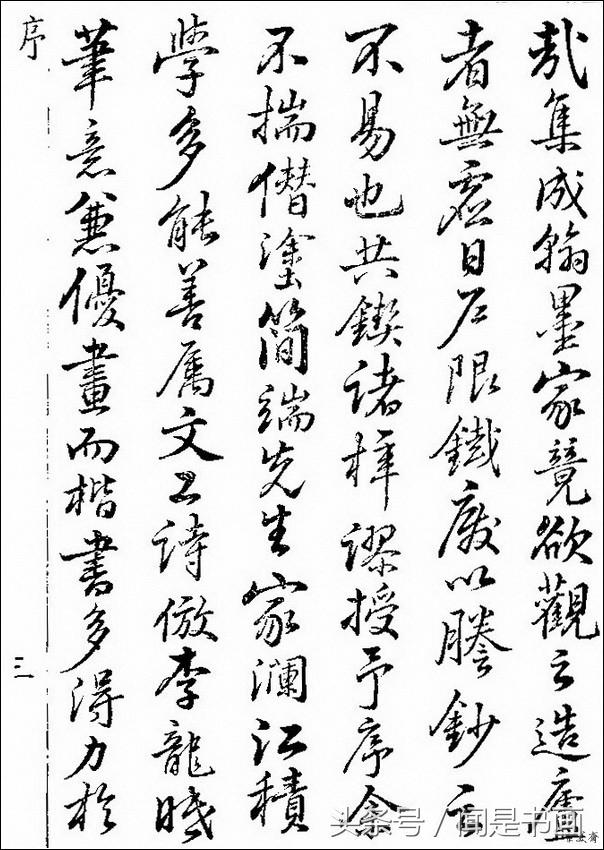 哉集成翰墨家竟欲觀之造廬
者無虛日戶限鐵廢以謄鈔之
不易也共鍥諸梓謬授予序余
不揣僭塗簡端先生家瀾江積
學多能善属文工詩倣李龍眠
筆意兼優畫而楷書多得力於
序
三
头条号／闻是书画